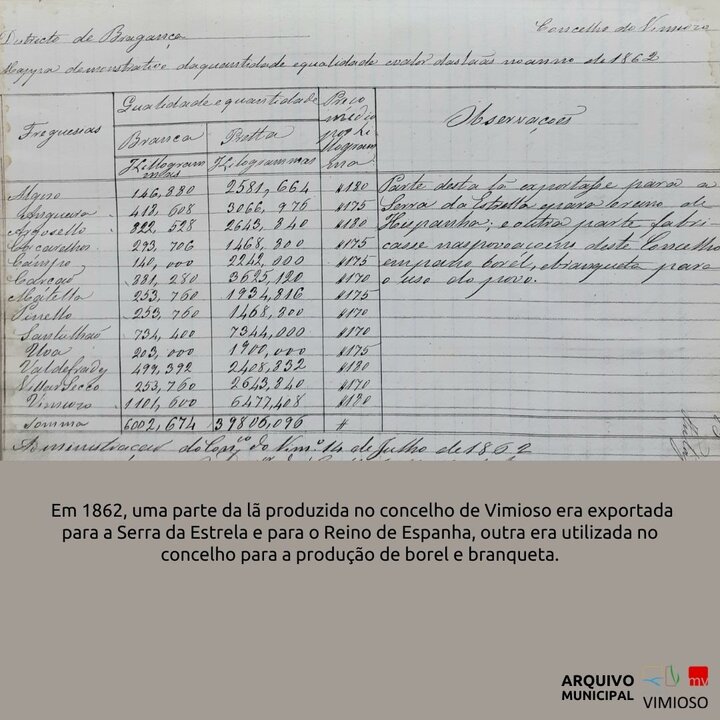 Districto de Bragança Concelho do Vimioso
Mappa demonstrativo da quantidade e qualidade e valor das lãs no anno de 1862
Freguesias Qualidade e quantidade Preço médio por kilogramma Observações
Branca Pretta
Killogrammas Killogrammas
Algoso 146,880 2581,664 $180 Parte desta lã exportasse para a
Angueira 418,608 3066,975 $175 Serra da Estrella e para o reino de
Argozello 822,528 2643,840 $180 Hespanha; e outra parte fabri-
Caçarelhos 293,706 1468,800 $175 casse nas povoaçoens deste Concelho
Campo 140,000 2242,000 $175 em panho borel, e branqueta para
Carção 881,280 3525,120 $170 o uso do povo.
Matella 253,760 1934,816 $175
Pinello 253,760 1468,800 $170
Santulhão 734,400 7344,000 $170
Uva 203,000 1900,000 $175
Valdefrades 499,392 2408,832 $180
Villar Secco 253,760 2643,840 $170
Vimioso 1101,600 6477,408 $180
Somma 6002,674 39806,096 #
Administração do Conc.º do Vim.º 14 de Julho de 1862
Em 1862, uma parte da lã produzida no concelho de Vimioso era exportada
para a Serra da Estrela e para o Reino de Espanha, outra era utilizada no
concelho para a produção de borel e branqueta.
ARQUIVO
MUNICIPAL
mv
VIMIOSO